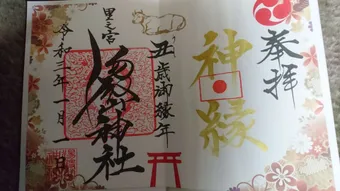 奉拝
神縁
丑歳御縁年
里之宮
神社
令和三年一月
日